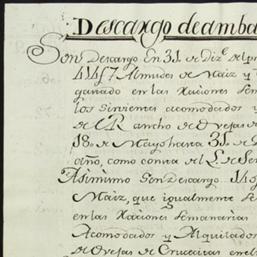 Descargo de amba
Son Descargo En 31 de Diz.e del p
4457 Almudes de Maiz y
ganado en las Raciones Sema
los Sirvientes acomodados y
de el Rancho de Ovejas de
18 de Mayo hasta 31 de D
año, como consta de el L. de Ser
Asimismo Son Descargo
Maiz, que igualmente
en las Raciones Semanarias
Acomodados y Alquilados
de Ovejas de Crucecitas en el